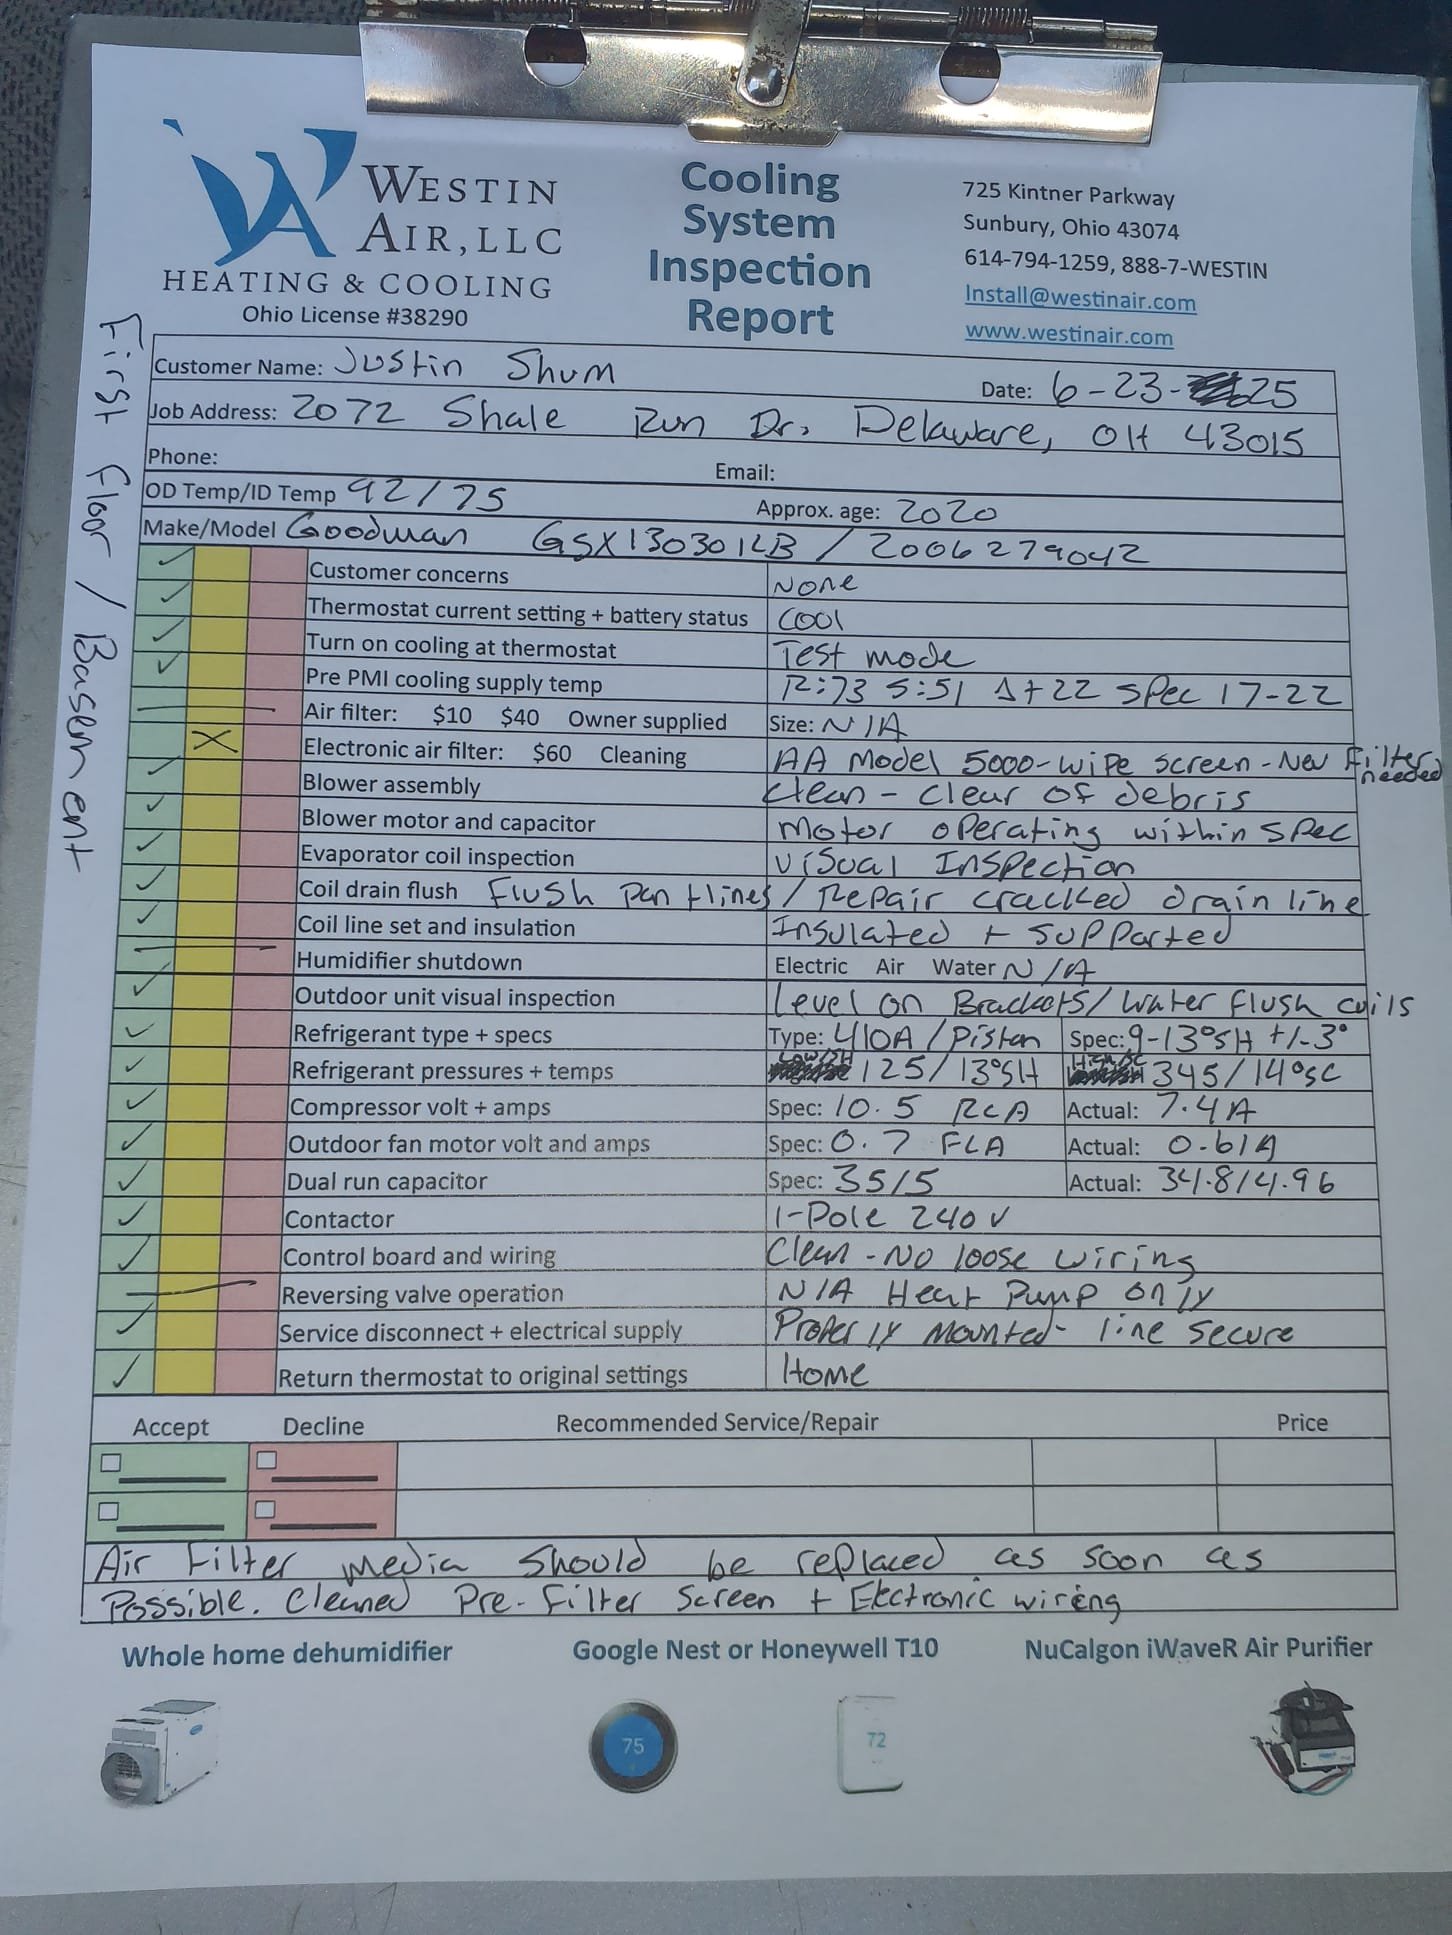 WESTIN
AIR, LLC
HEATING & COOLING
Ohio License #38290
Cooling
System
Inspection
Report
725 Kintner Parkway
Sunbury, Ohio 43074
614-794-1259, 888-7-WESTIN
Install@westinair.com
www.westinair.com
First Floor / Basement
Customer Name: Justin Shum Date: 6-23-25
Job Address: 2072 Shale Run Dr. Delaware, OH 43015
Phone: Email:
OD Temp/ID Temp 92/75 Approx. age: 2020
Make/Model Goodman GSX130301KB / 2006279042
Customer concerns None
Thermostat current setting + battery status Cool
Turn on cooling at thermostat Test mode
Pre PMI cooling supply temp R:73 S:51 Δt 22 Spec 17-22
Air filter: $10 $40 Owner supplied Size: N/A
Electronic air filter: $60 Cleaning AA Model 5000-wipe screen-New Filter needed
Blower assembly Clean - Clear of debris
Blower motor and capacitor Motor operating within spec
Evaporator coil inspection Visual Inspection
Coil drain flush Flush Pan + lines / Repair cracked drain line
Coil line set and insulation Insulated + Supported
Humidifier shutdown Electric Air Water N/A
Outdoor unit visual inspection Level on Brackets/Water flush coils
Refrigerant type + specs Type: 410A / Piston Spec: 9-13°SH +/-3°
Refrigerant pressures + temps Low/SH 125/13°SH High/SC 345/14°SC
Compressor volt + amps Spec: 10.5 RLA Actual: 7.4A
Outdoor fan motor volt and amps Spec: 0.7 FLA Actual: 0.61A
Dual run capacitor Spec: 35/5 Actual: 34.8/4.96
Contactor 1-Pole 240V
Control board and wiring Clean - No loose wiring
Reversing valve operation N/A Heat Pump only
Service disconnect + electrical supply Properly mounted- line secure
Return thermostat to original settings Home
Accept Decline Recommended Service/Repair Price
Air Filter media should be replaced as soon as
Possible. Cleaned Pre-Filter Screen + Electronic wiring
Whole home dehumidifier Google Nest or Honeywell T10 NuCalgon iWaveR Air Purifier
75
72